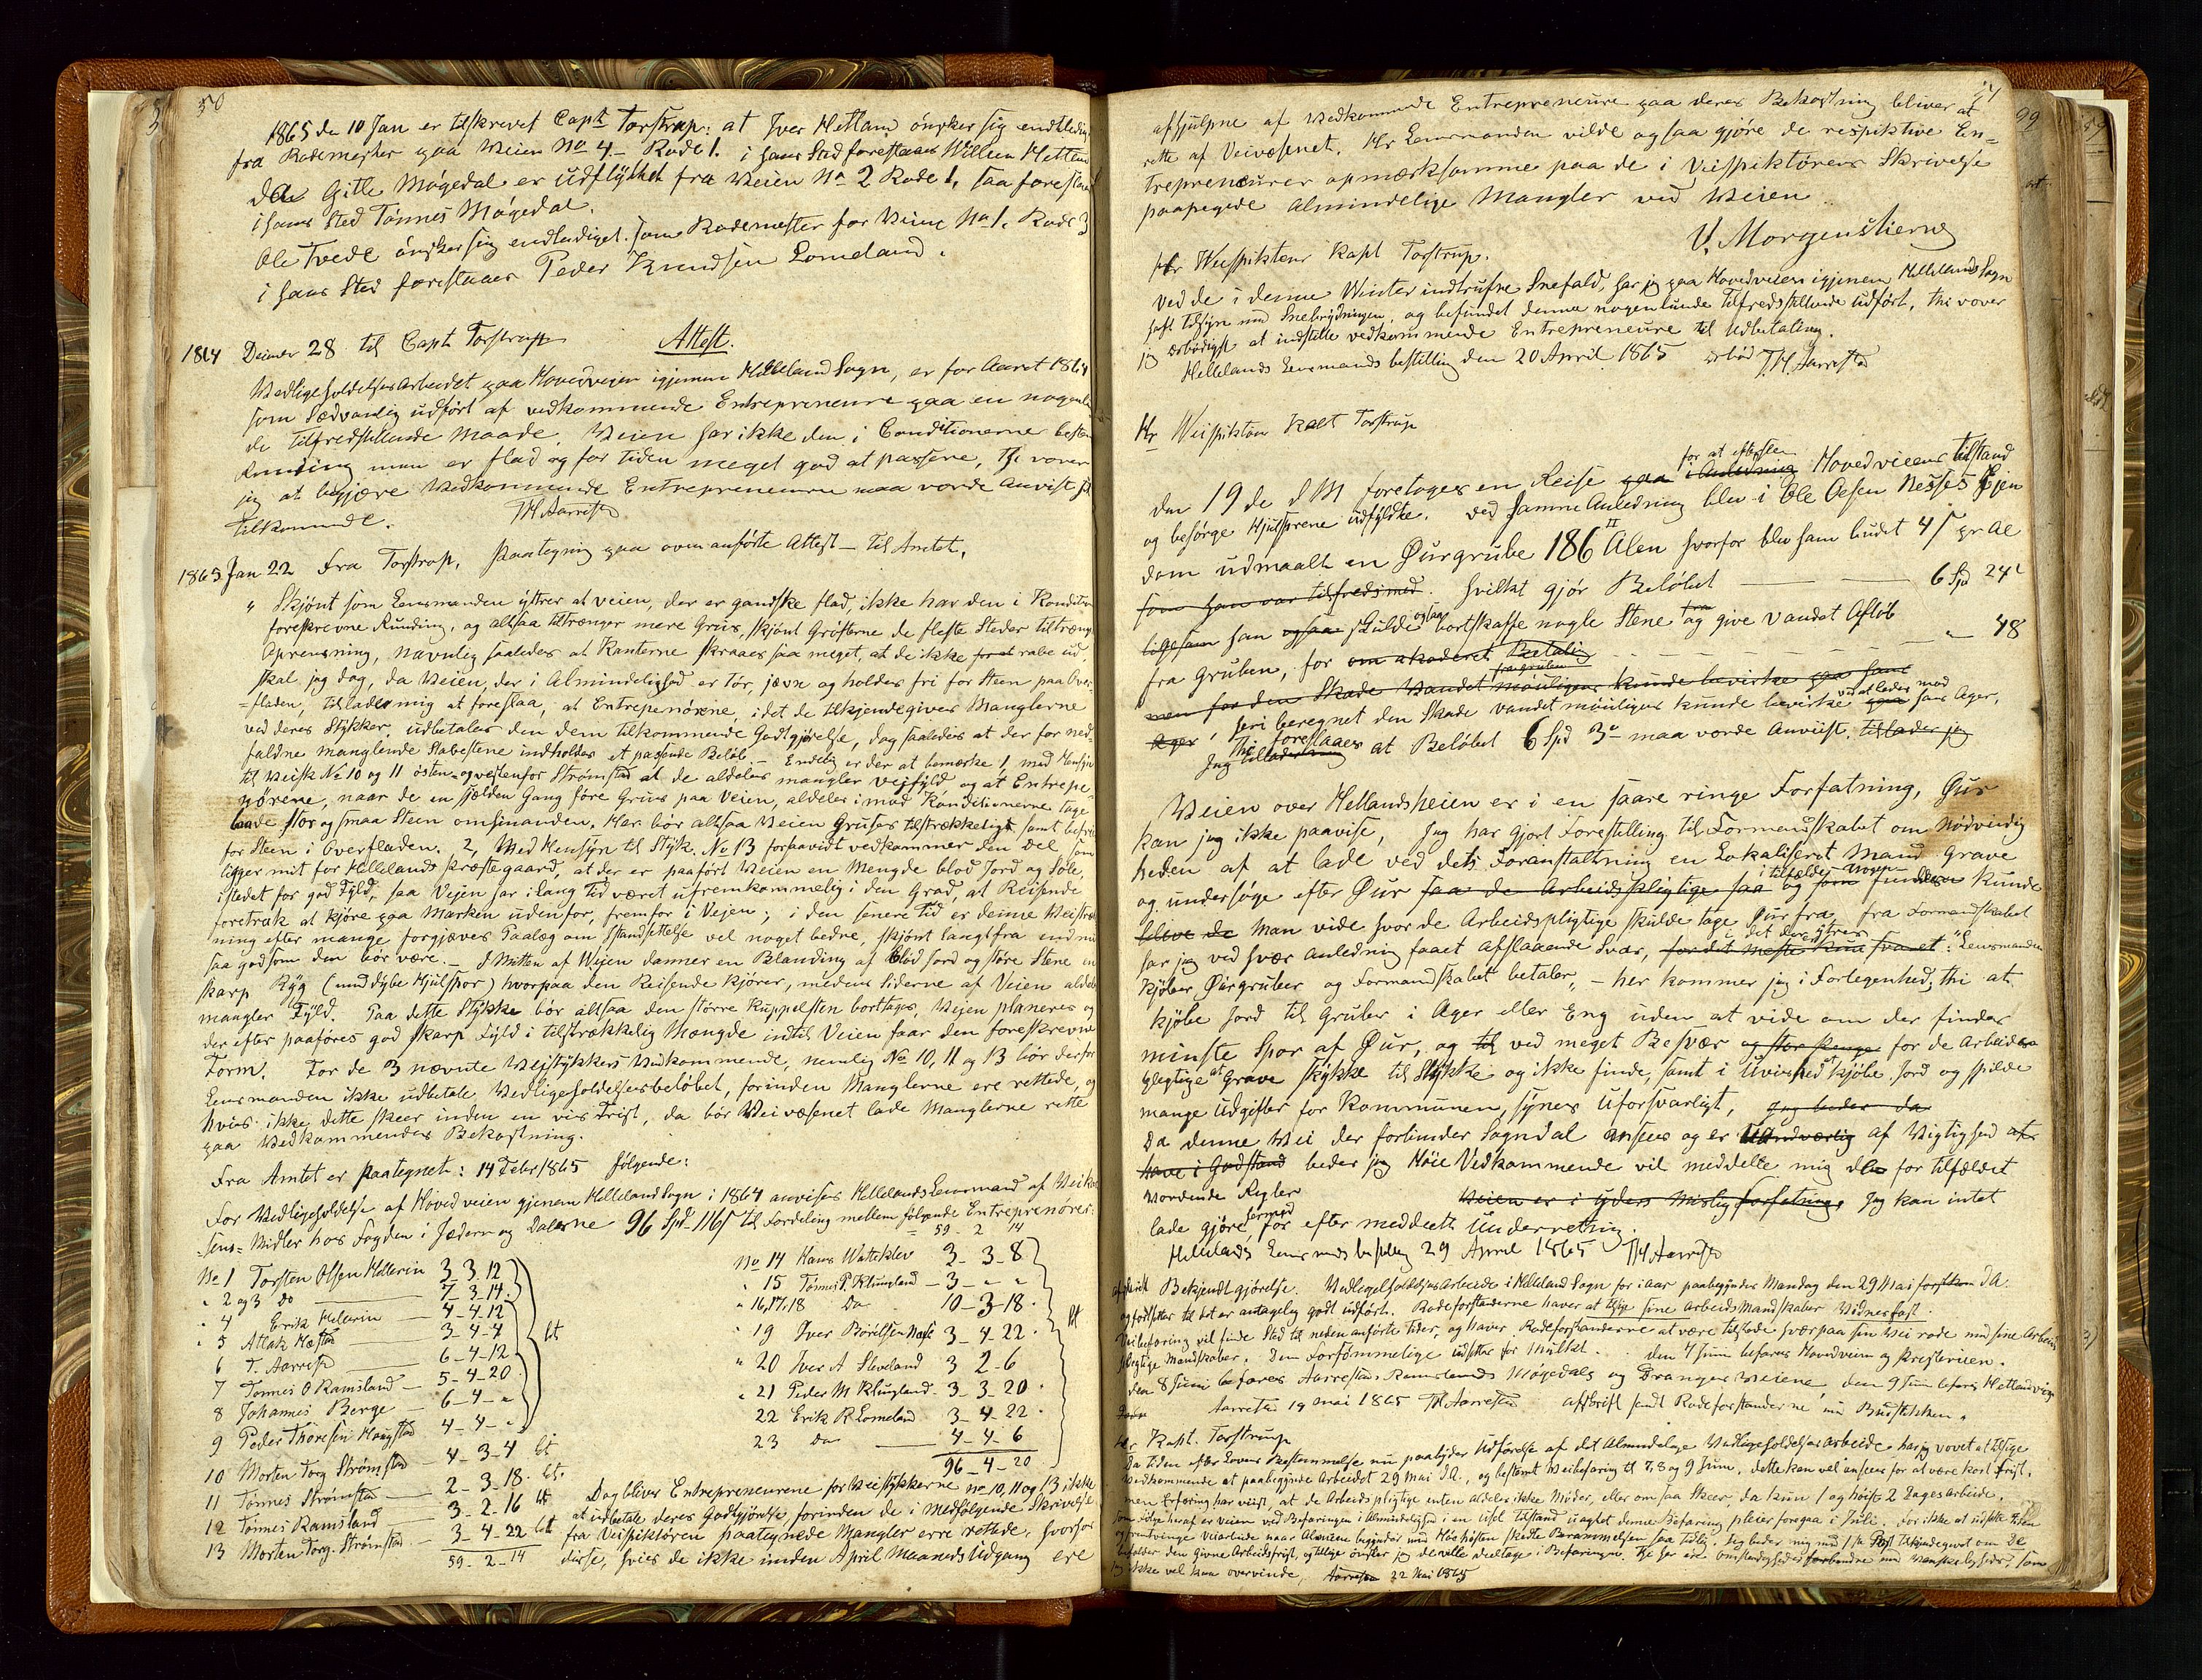 50
1865 de 10 Jan er tilskrevet Capt Torstrup: at Iver Hetland ønsker sig endtledig
fra Rodemester paa Veien No 4 – Rode 1. i hans Sted forestaaes Willem Hetland
da Gitle Møgedal er udflÿttet fra Veien No 2 Rode 1, saa foreslaaes
i hans Sted Tønnes Møgedal.
Ole Tvede ønsker sig endtlediget som Rodemester for Veien No 1. Rode 3
i hans Sted foreslaaes Peder Knudsen Lomeland.
1864 28 til Capt Torstrup
Attest.
Vedligeholdelsesarbeidet paa Hovedveien igjennem Helleland Sogn, er for Aaret 1864
som sædvanlig udført af vedkommende Entrepreneure paa en nogenlun
de tilfredstillende Maade. Veien har ikke den i Conditionerne bestemte
Runding men er flad og for tiden meget god at passere, Thi vover
jeg at begjære Vedkommende Entrepreneure maa vorde Anvist
tilkommende.
TH Aarrestad
1865 Jan 22 Fra Torstrop, Paategning paa ovenanførte Attest – til Amtet.
" Skjønt som Lensmanden ÿttrer at veien, der er gandske flad, ikke har den i Konditionerne
foreskrevne Runding, og altsaa tiltrænger mere Grus, skjønt Grøfterne de fleste Steder tiltrænger
Oprensning, navnlig saaledes at Kanterne skraaes saa meget, at de ikke rabe ud,
skal jeg dog, da Veien, der i Almindelighed er tør, jævn og holdes fri for Steen paa Over-
=fladen, tillade mig at foreslaa, at Entrepenørerne, idet de tilkjendegives Manglerne
ved deres Stÿkker, udbetales den dem tilkommende Godtgjørelse, dog saaledes at der for ned-
faldne manglende Stabestene indholdes et passende Beløb. – Endelig er der at bemærke 1, med Hensÿn
til Veistk No 10 og 11 østen- og vestenfor Strømstad at de aldeles mangler Vejfÿld, og at Entrepe-
nørerne, naar de en sjelden Gang føre Grus paa Veien, aldeles imod Konditionerne tage
baade stor og smaa Steen om hinanden. Her bør altsaa Veien Gruses tilstrækkeligt samt befries
for Steen i Overfladen. 2, Med Hensÿn til Stÿk. No 13 forsaavidt vedkommer den Deel som
ligger mit for Hellelands Præstegaard, at der er paaført Veien en Mengde blød Jord og Søle,
istedet for god Fÿld, saa Vejen har i lang Tid været ufremkommelig i den Grad, at Reisende
foretrak at kjøre paa Marken udenfor, fremfor i Vejen; i den senere Tid er denne Veistræk-
ning efter mange forgjæves Paalæg om Istandsettelse vel noget bedre, skjønt langt fra endnu
saa god som den bør være. – I Mitten af Vejen danner en Blanding af blød Jord og støre Stene en
skarp Rÿg (med dÿbe Hjulspor) hvorpaa den Reisende kjører, medens siderne af Veien aldeles
mangler Fÿld. Paa dette Stÿkke bør altsaa den større Kuppelsten borttages, Vejen planeres og
der efter paaføres god skarp Fÿld i tilstrækkelig Mængde indtil Veien faar den foreskrevne
Form. For de 3 nævnte Vejstÿkkers Vedkommende, nemlig No 10, 11 og 13 bør derfor
Lensmanden ikke udbetale Vedligeholdelsesbeløbet, forinden Manglerne ere rettede, og
hvis ikke dette skeer inden en vis Frist, da bør Veivæsenet lade Manglerne rette
paa Vedkommendes Bekostning.
Fra Amtet er paategnet: 14 Febr 1865 følgende:
For Vedligeholdelse af Hovedveien gjennem Helleland Sogn i 1864 anvises Hellelands Lensmand af Veikas
=sens= Midler hos Fogden i Jæderen og Dalerne 96 Spd 116 s til Fordeling mellem følgende Entreprenører:
59 – 2 14
No 1 Torsten Olsen Hellerin 3 – 3 – 12
" 2 og 3 do 7 – 3 – 14
" 4 Erik Helerin 4 – 4 – 12
" 5 Atlak Hæstad 3 – 4 – 4
6 T. Aarrestad 6 – 4 – 12
7 Tønnes O Ramsland 5 – 4 – 20
8 Johannes Berge 6 – 4 – "
9 Peder Thoresen Haugstad 4 – 4 – "
10 Morten Torg. Strømstad 4 – 3 – 4 bt
11 Tønnes Strømstad 2 – 3 – 18 bt.
12 Tønnes Ramsland 3 – 2 – 16 bt
13 Morten Torg. Strømstad 3 – 4 – 22 bt
59 – 2 – 14
bt
No 14 Hans Watteklev 3 – 3 – 8
" 15 Tønnes P. Klungland – 3 – " "
" 16, 17, 18 Do 10 – 3 – 18
" 19 Iver Børildsen 3 – 4 – 22
" 20 Iver A Sleveland 3 2 – 6
" 21 Peder M Klugland 3 – 3 – 20
22 Erik R Lomeland 3 – 4 – 22
23 Do 4 – 4 – 6
96 – 4 – 20
bt
Dog bliver Entrepreneurene for Veistÿkkerne No 10, 11 og 13 ikke
at udbetale deres Godtgjørelse, forinden de i medfølgende Skrivelse
fra Veispiktøren paategnede Mangler erre rettede, hvorfor
disse, hvis de ikke inden April Maaneds Udgang ere
51
afhjulpne af Vedkommende Entrepreneure paa deres Bekostning bliver at
rette af Veivæsenet. Hr Lensmanden vilde ogsaa gjøre de respiktive En-
trepreneurer opmærksomme paa de i Veispiktørens Skrivelse
paapegede Almindelige Mangler ved Veien.
V. Morgenstierne
Hr Weispiktør Kapt Torstrup.
Ved de i denne Winter indtrufne Snefald, har jeg paa Hovedveien igjenem Hellelands Sogn
haft tilsyn med Snebrydningen, og befundet denne nogenlunde tilfredstillende udført, thi vover
jeg ærbødigst at indstille vedkommende Entrepreneure til Udbetaling.
Hellelands Lensmandsbestilling den 20 April 1865 ærbød TH. Aarrestad
Hr Weispiktør Kapt Torstrup
for at efterssee
Den 19 de d M foretoges en Reise paa i Anledning Hovedveiens tilstand
og besørge Hjulsporene udfÿldte. Ved samme Anledning blev i Ole Oesen Nesses Ejen
dom udmaalt en Øurgrube 186 Alen hvorfor blev ham budet 4 s pr Al
som han var tilfreds med. hvilket gjør Beløbet 6 Spd 24 s
ligesom han ogsaa skulde ogsaa bortskaffe nogle Stene fra og give Vandet Afløb
fra Gruben, for om akoderet Betaling " 48
men for den Skade Vandet fra gruben mueligens kunde bevirke paa hans
Ager, heri beregnet den Skade vandet mueligens kunde bevirke ved at ledes mod hans Ager,
Jeg tillader mig Thi foreslaaes at Beløbet 6 Spd 3 maa vorde Anviist. tillader jeg
Veien over Hetlandsheien er i en saare ringe Forfatning, Øur
kan jeg ikke paavise, Jeg har gjort Forestilling til Formandskabet om Nødvendig
heden af at lade ved dets Foranstaltning en Lokaliseret Mand Grave
og undersøge efter Øur saa de Arbeidspligtige saa og i tilfælde kunde
blive de Man vide hvor de Arbeidspligtige skulde tage Øur fra, fra Formandskabet
har jeg ved hver Anledning faaet afslaaende Svar, i det der ÿtres: "Lensmanden
kjøber Øurgruber og Formandskabet betaler, – her kommer jeg i Forlegenhed; thi at
kjøbe Jord til Gruber i Ager eller Eng uden at vide om der findes
minste Spor af Øur, og til ved meget Besvær og stor for de Arbeids
pligtige at Grave Stÿkke til Stÿkke og ikke finde, samt i Uvished at kjøbe Jord og spilde
mange Udgifter for Kommunen, sÿnes Uforsvarligt, Jeg beder da
Da denne Vei der forbinder Sogndal ansees og er af Vigtighed at
have i Godstand beder jeg Høie Vedkommende vil meddelle mig de for tilfældet
vordende Regler Veien er i yders mislig forfatning. Jeg kan intet
lade gjøre dermed før efter meddeelt Underretning.
Hellelands Lensmandsbestilling 29 April 1865 TH Aarrestad
Bekjendtgjørelse. Vedligeholdelsesarbeide i Helleland Sogn for i aar paabegÿndes Mandag den 29 Mai d A.
og fortsættes til det er antagelig godt udført. Rodeforstanderne haver at tilsige sine Arbeidsmandskaber Vidnesfast.
Veibefaring vil finde Sted til nedenanførte tider, og haver Rodeforstanderne at være tilstede hver paa sin Vei rode med sine Arbeids
pligtige Mandskaber. Den Forsømmelige udsettes for Mulkt. den 7 Juni befares Hovedveien og Presteveien.
den 8 Juni befares Aarrestads Ramslands Møgedals og Drangs Veiene, den 9 Juni befares Hetlandsveien
Aarrestad 19 Mai 1865 TH Aarrestad Afskrift sendt Rodeforstanderne med Budstikken.
Hr Kapt. Torstrup
Da tiden efter Lovens Bestemmelse nu paabÿder Udførelse af det Almindelige Vedligeholdelses Arbeide, har jeg vovet at tilsige
Vedkommende at paabegÿnde Arbeidet 29 Mai d A., og bestemt Veibefaring til 7, 8 og 9 Juni, dette kan vel ansees for at være kort Frist,
men Erfaring har viist, at de Arbeidspligtige enten aldeles ikke Møder, eller om saa Skeer, da kun 1 og høist 2 Dages Arbeide.
Som følge heraf er veien ved Befaringen i Almindelighed i en usel tilstand uagtet denne Befaring pleier foregaa i Juli. For ikke at udsætte tiden
og fremtvinge Veiarbeide naar Almuen begÿnder med Høe høsten skedte Berammelsen saa tidlig. Jeg beder mig med 1ste Post tilkjendegivet om De
befalder den givne Arbeidsfrist, og tillige ønsker jeg De ville deeltage i Befaringen. Thi her ere Omstændigheder forbundne med Vanskeligheder, som
jeg ikke vel kan overvinde, Aarrestad 22 Mai 1865